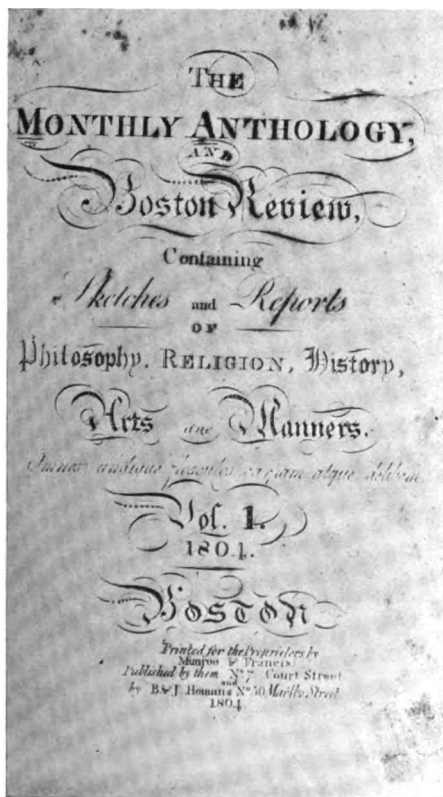 THE
MONTHLY ANTHOLOGY,
AND
Boston Review,
Containing
Sketches and Reports
OF
Philosophy, RELIGION, History,
Arts and Manners.
undique carpam atque
Vol. 1.
1804.
BOSTON
Printed for the Proprietors by
Munroe & Francis
Published by them No. 7 Court Street
and
by B & J. Homans No. 50 Marlbo Street
1804